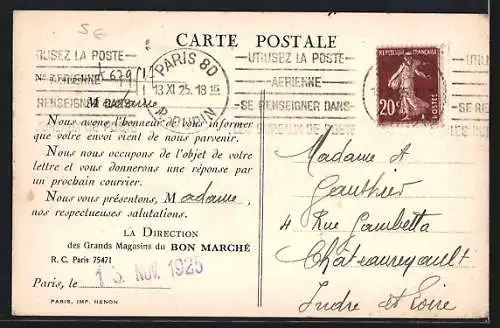 56
CARTE POSTALE
UTILISEZ LA POSTE
AERIENNE
RENSEIGNER DANS
PARIS 80
13 XI 25. 18
UTILISEZ LA POSTE
AERIENNE
SE RENSEIGNER DANS
LES BUREAUX DE POSTE
REPUBLIQUE FRANÇAISE
20c
POSTES
Madame
Nous avons l'honneur de vous informer
que votre envoi vient de nous parvenir.
Nous nous occupons de l'objet de votre
lettre et vous donnerons une réponse par
un prochain courrier.
Nous vous présentons, Madame,
nos respectueuses salutations.
LA DIRECTION
des Grands Magasins du BON MARCHÉ
R. C. Paris 75471
Paris, le 13 NOV. 1925
PARIS, IMP. HENON
Madame A
Gauthier
4 Rue Gambetta
Châteaurenault
Indre et Loire